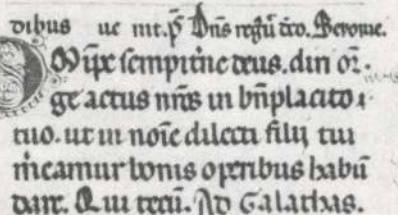 dibus ue mt. p̄ Dn̄s regū dr̄o. Berome.
Om̄ps sempit̄ne deus. diri or̄.
ge actus nr̄os in bn̄placito
tuo. ut in noīe dilecti filij tui
m̄eamur bonis op̄ibus habū
dare. Qui tecū. Ad Galathas.